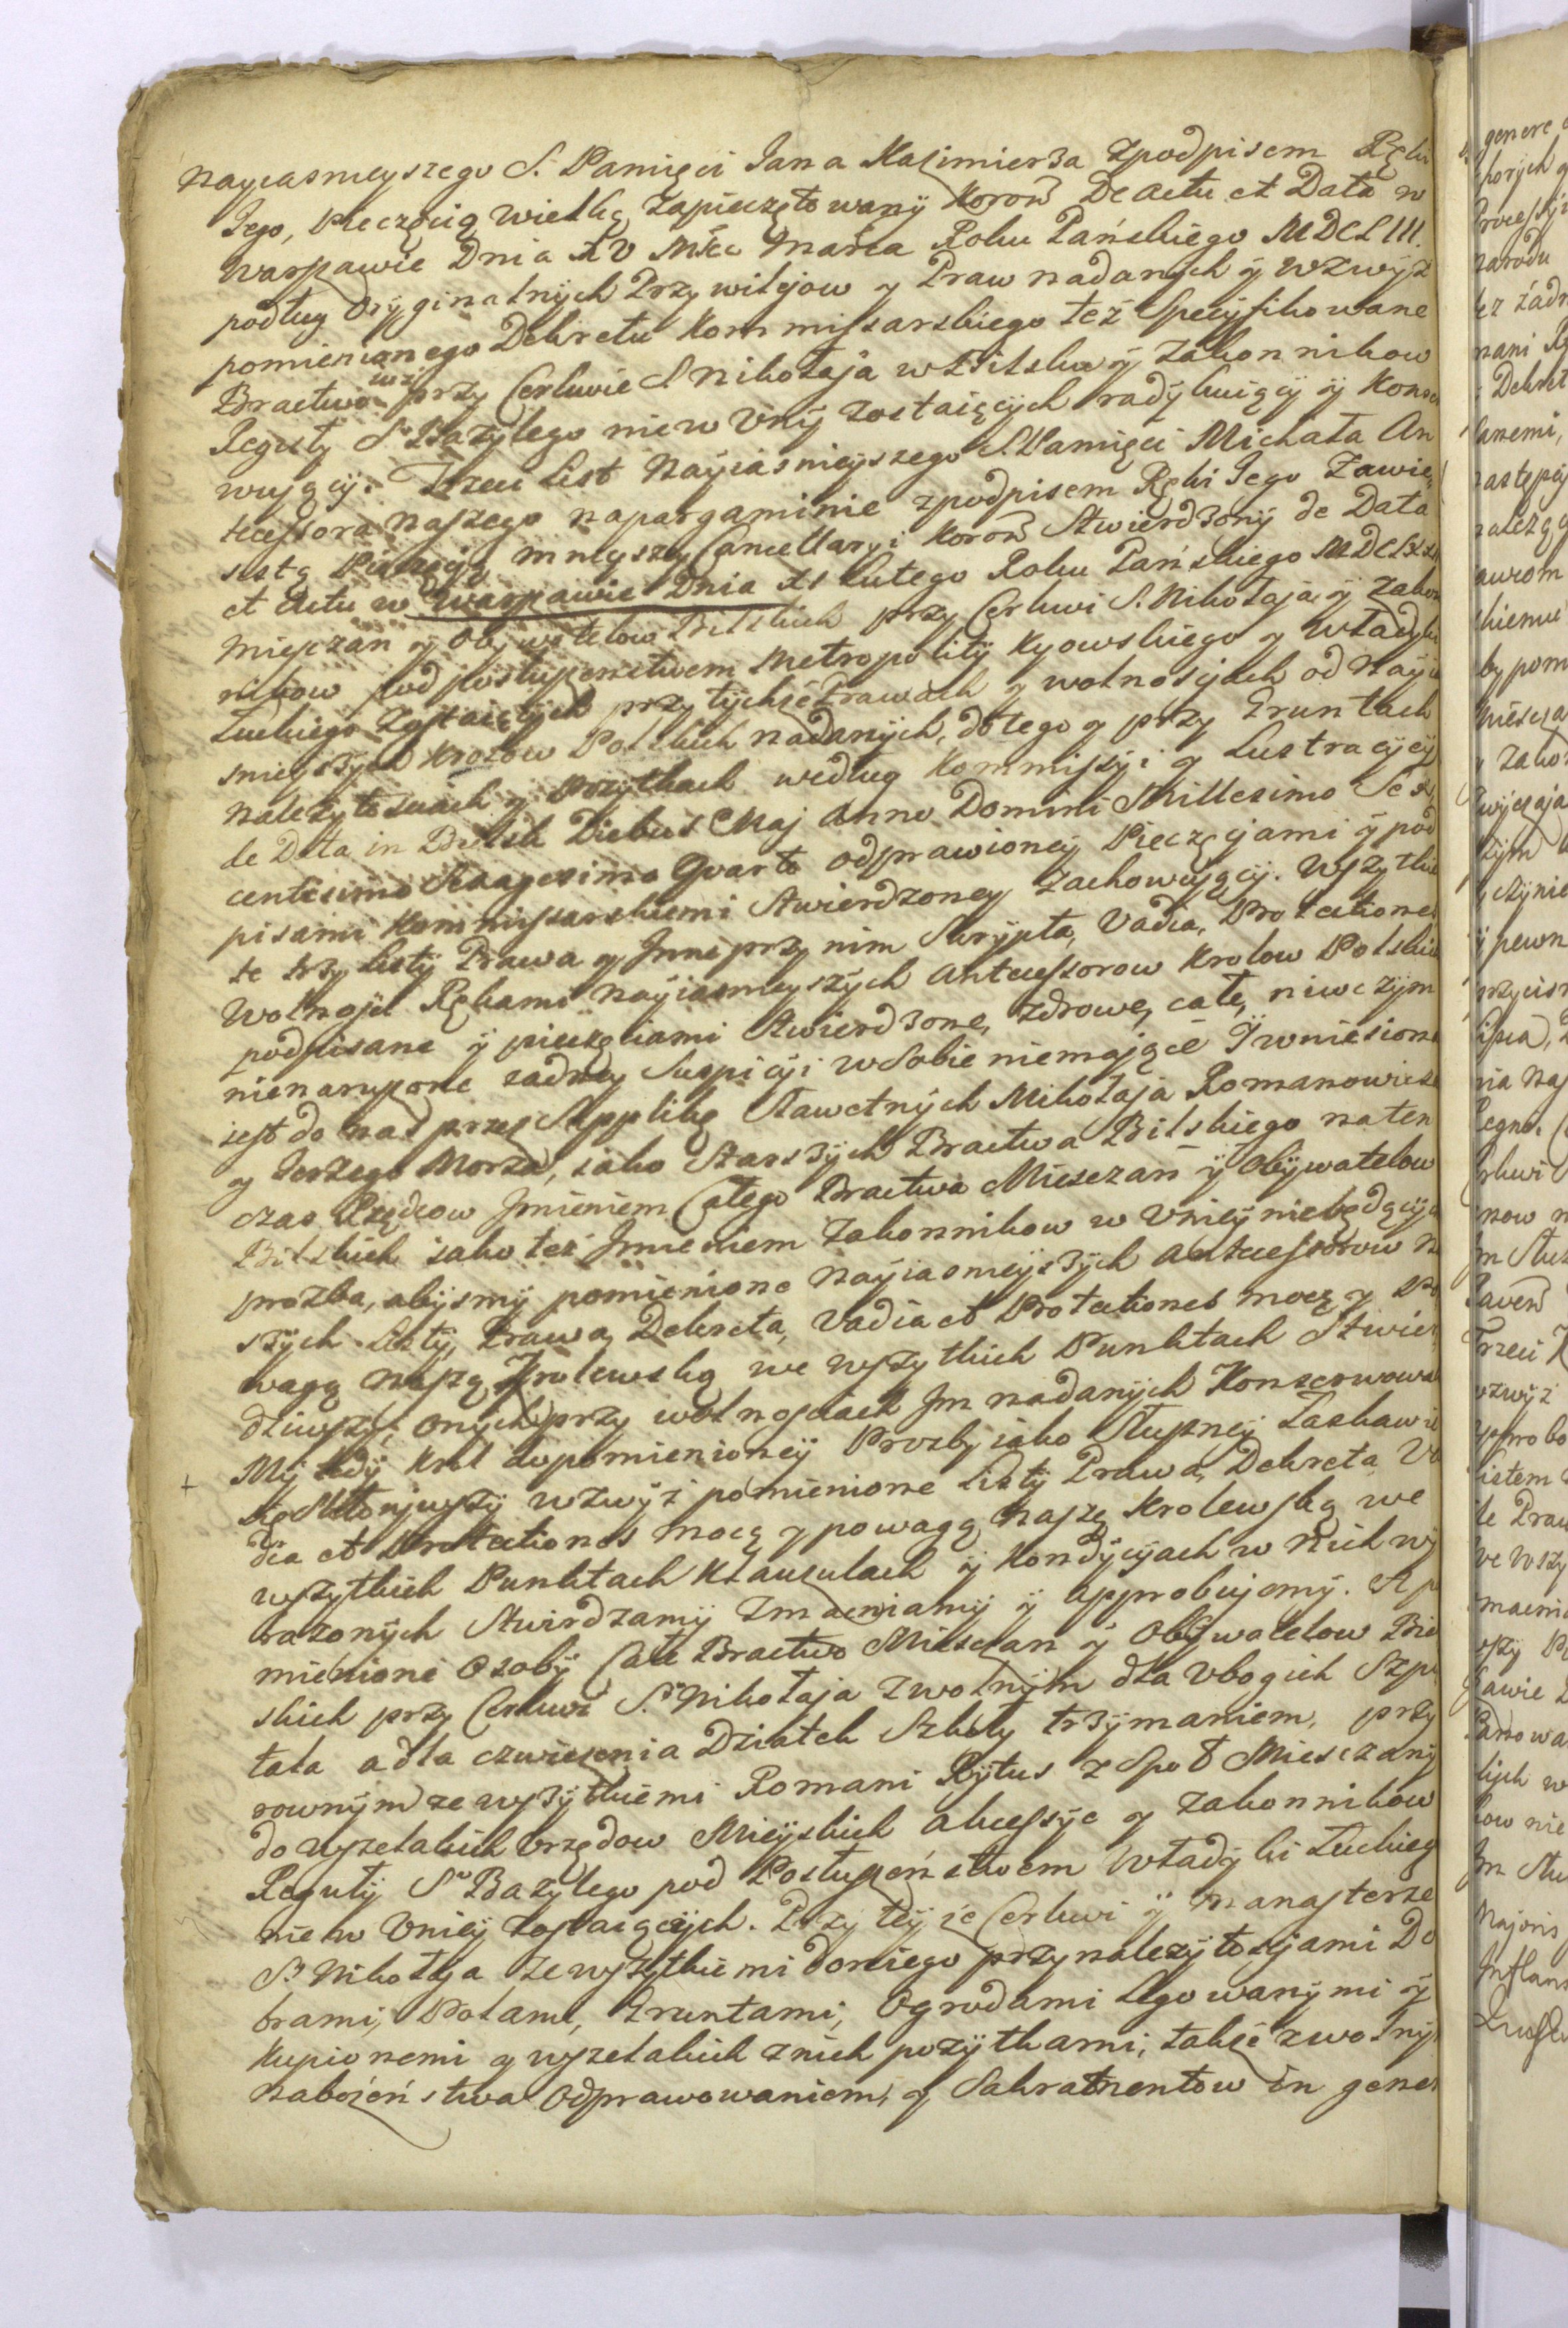 Nayiasnieyszego S. Pamięci Jana Kazimierza zpodpisem Ręki
Jego, Pieczęcią wielką Zapieczętowanÿ Koron De actu et Data w
Warszawie Dnia XV Msca Marca Roku Pańskiego MDCLIII.
podług Orÿginalnÿch Przywilejow y Praw nadanÿch ÿ wzwÿż
pomienionego Dekretu Kommissarskiego też Specÿfikowane
Bractwo przy Cerkwie S Nikołaja w Bilsku ÿ Zakonnikow
Regułÿ So Bazÿlego nie w Vnÿ zostaiącÿch radÿkuiącÿ ÿ Konser
wuyącÿ. Trzeci List Nayiasnieÿszego S. Pamięci Michała An
tecessora naszego napargaminie zpodpisem Ręki Jego Zawie
sistą Pieczęcią mnieyszey Cancellaryi Koron Stwierdzonÿ de Data
et Actu w Warszawie Dnia XI Lutego Roku Pańskiego
Mieszczan y Obywatelow Bilskich przy Cerkwi S. Nikołaja ÿ Zakon
nikow pod posłuszenstwem Metropolitÿ Kyowskiego y Władÿki
Łuckiego Zostaiącÿch przy tÿchże Prawach y wolnosciach od Nayia
snieyszÿch Krolow Polskich nadanÿch, do tego y przy Gruntach
należytosciach y Pożytkach według Kommissÿi y Lustracÿÿ
de Data in Bielsk Diebus Maj Anno Domini Millesimo Sex
centesimo Sexagesimo Quarto odprawioneÿ Pieczęcjami ÿ pod
pisami Kommissarskiemi Stwierdzoney Zachowuÿącÿ. Wszytkie
te trzy Listÿ Prawa y Inne przy nim Skrÿpta, Vadia, Protectiones
Wolnosci Rękami Nayiasnieyszÿch Antecessorow Krolow Polskich
podpisane ÿ pieczęciami Stwierdzone, zdrowe, całe, niwczÿm
nienaruszone żadney Suspicÿi w Sobie niemające Ÿ wniesiona
jest do nas przez Supplikę Sławetnÿch Mikołaja Romanowicza
y Jerzego Morza, jako Starszÿch Bractwa Bilskiego naten
czas Rządcow Jmieniem Całego Bractwa Miesczan ÿ Obÿwatelow
Bilskich jako też Jmieniem Zakonnikow w Vnieÿ niebędącÿch
prozba, abÿsmÿ pomienione Nayiasnieÿszÿch Antecessorow na
szÿch Listÿ, Prawa, Dekreta, Vadia et Protectiones mocą y Po
wagą naszą Krolewską we wszytkich Punktach Stwier
dziwszy, onÿch przy wolnosciach Jm nadanÿch Konserwowali
Mÿ tedÿ Krol do pomienioneÿ Prozby jako Słuszneÿ Łaskawie
się Skłoniwszÿ wzwÿż pomienione Listÿ Prawa, Dekreta, Va
dia et Protectiones mocą y powagą naszą Krolewską we
wszytkich Punktach Klauzulach ÿ Kondÿcÿach w nich wÿ
rażonÿch Stwirdzamÿ Zmacniamÿ ÿ approbujemÿ. A po
mienione Osobÿ Całe Bractwo Miesczan ÿ Obÿwatelow Biel
skich przy Cerkwi So Nikołaja z wolnÿm dla Vbogich Szpi
tala a dla cwiczenia Dziatek Szkołÿ trzÿmaniem, przy
rownÿm ze wszÿtkiemi Romani Rÿtus z Społ Miesczanÿ
do wszelakich Vrzędow Mieÿskich akcessÿe y Zakonnikow
Regułÿ So Bazylego pod Posłuszeństwem Władÿki Łuckieg
nie w Vnieÿ zostaiącÿch. Przy teÿże Cerkwi ÿ Manasterze
So Nikołaja ze wszytkiemi doniego przynależytosciami Do
brami, Polami, Gruntami, Ogrodami Legowanÿmi ÿ
Kupionemi y wszelakich znich pożÿtkami, także z wolnÿ
nabożeństwa Odprawowaniem, y Sakramentow in gener